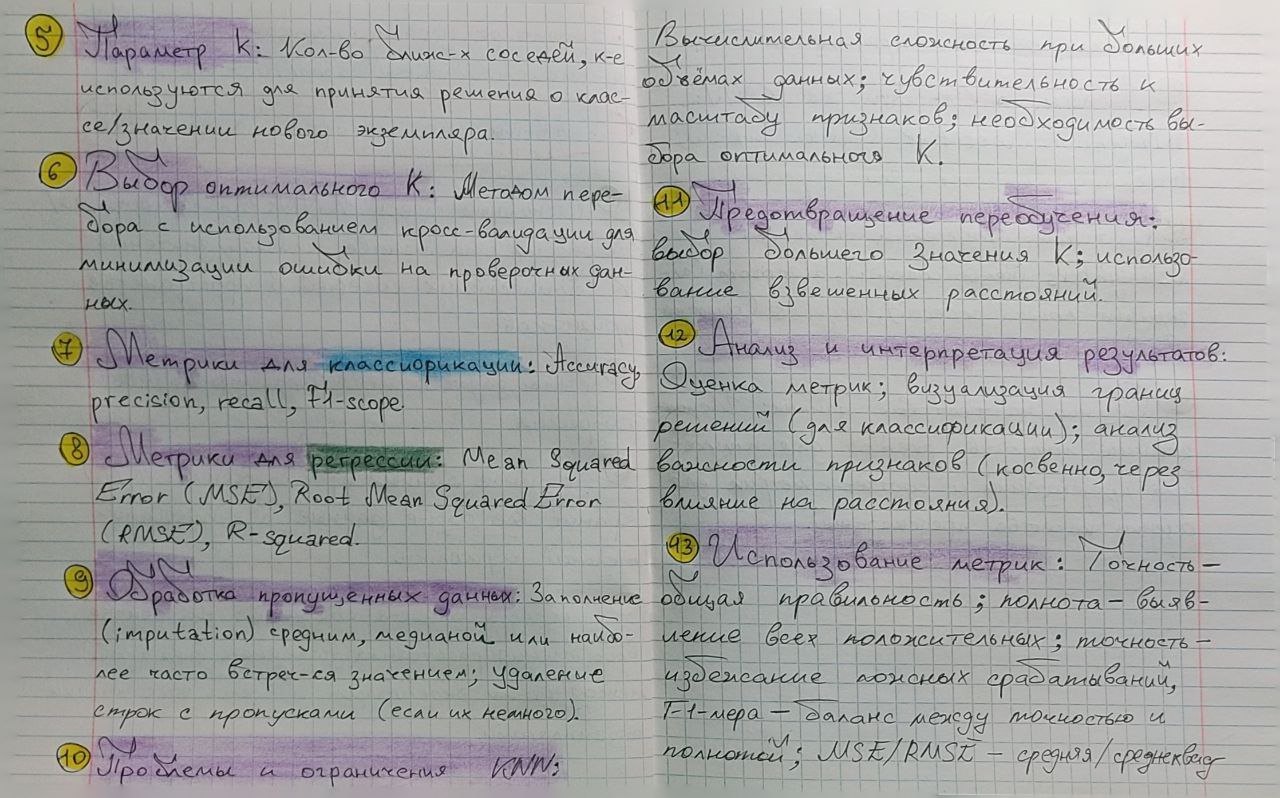 5 Параметр K: Кол-во ближ-х соседей, к-е
используются для принятия решения о клас-
се/значении нового экземпляра.
6 Выбор оптимального K: Методом пере-
бора с использованием кросс-валидации для
минимизации ошибки на проверочных дан-
ных.
7 Метрики для классификации: Accuracy,
precision, recall, F1-score.
8 Метрики для регрессии: Mean Squared
Error (MSE), Root Mean Squared Error
(RMSE), R-squared.
9 Обработка пропущенных данных: Заполнение
(imputation) средним, медианой или наибо-
лее часто встреч-ся значением; удаление
строк с пропусками (если их немного).
10 Проблемы и ограничения KNN:
Вычислительная сложность при больших
объёмах данных; чувствительность к
масштабу признаков; необходимость вы-
бора оптимального K.
11 Предотвращение переобучения:
выбор большего значения K; использо-
вание взвешенных расстояний.
12 Анализ и интерпретация результатов:
Оценка метрик; визуализация границ
решений (для классификации); анализ
важности признаков (косвенно, через
влияние на расстояния).
13 Использование метрик: Точность –
общая правильность; полнота – выяв-
ление всех положительных; точность –
избежание ложных срабатываний,
F-1-мера – баланс между точностью и
полнотой; MSE/RMSE – средняя/среднеквад